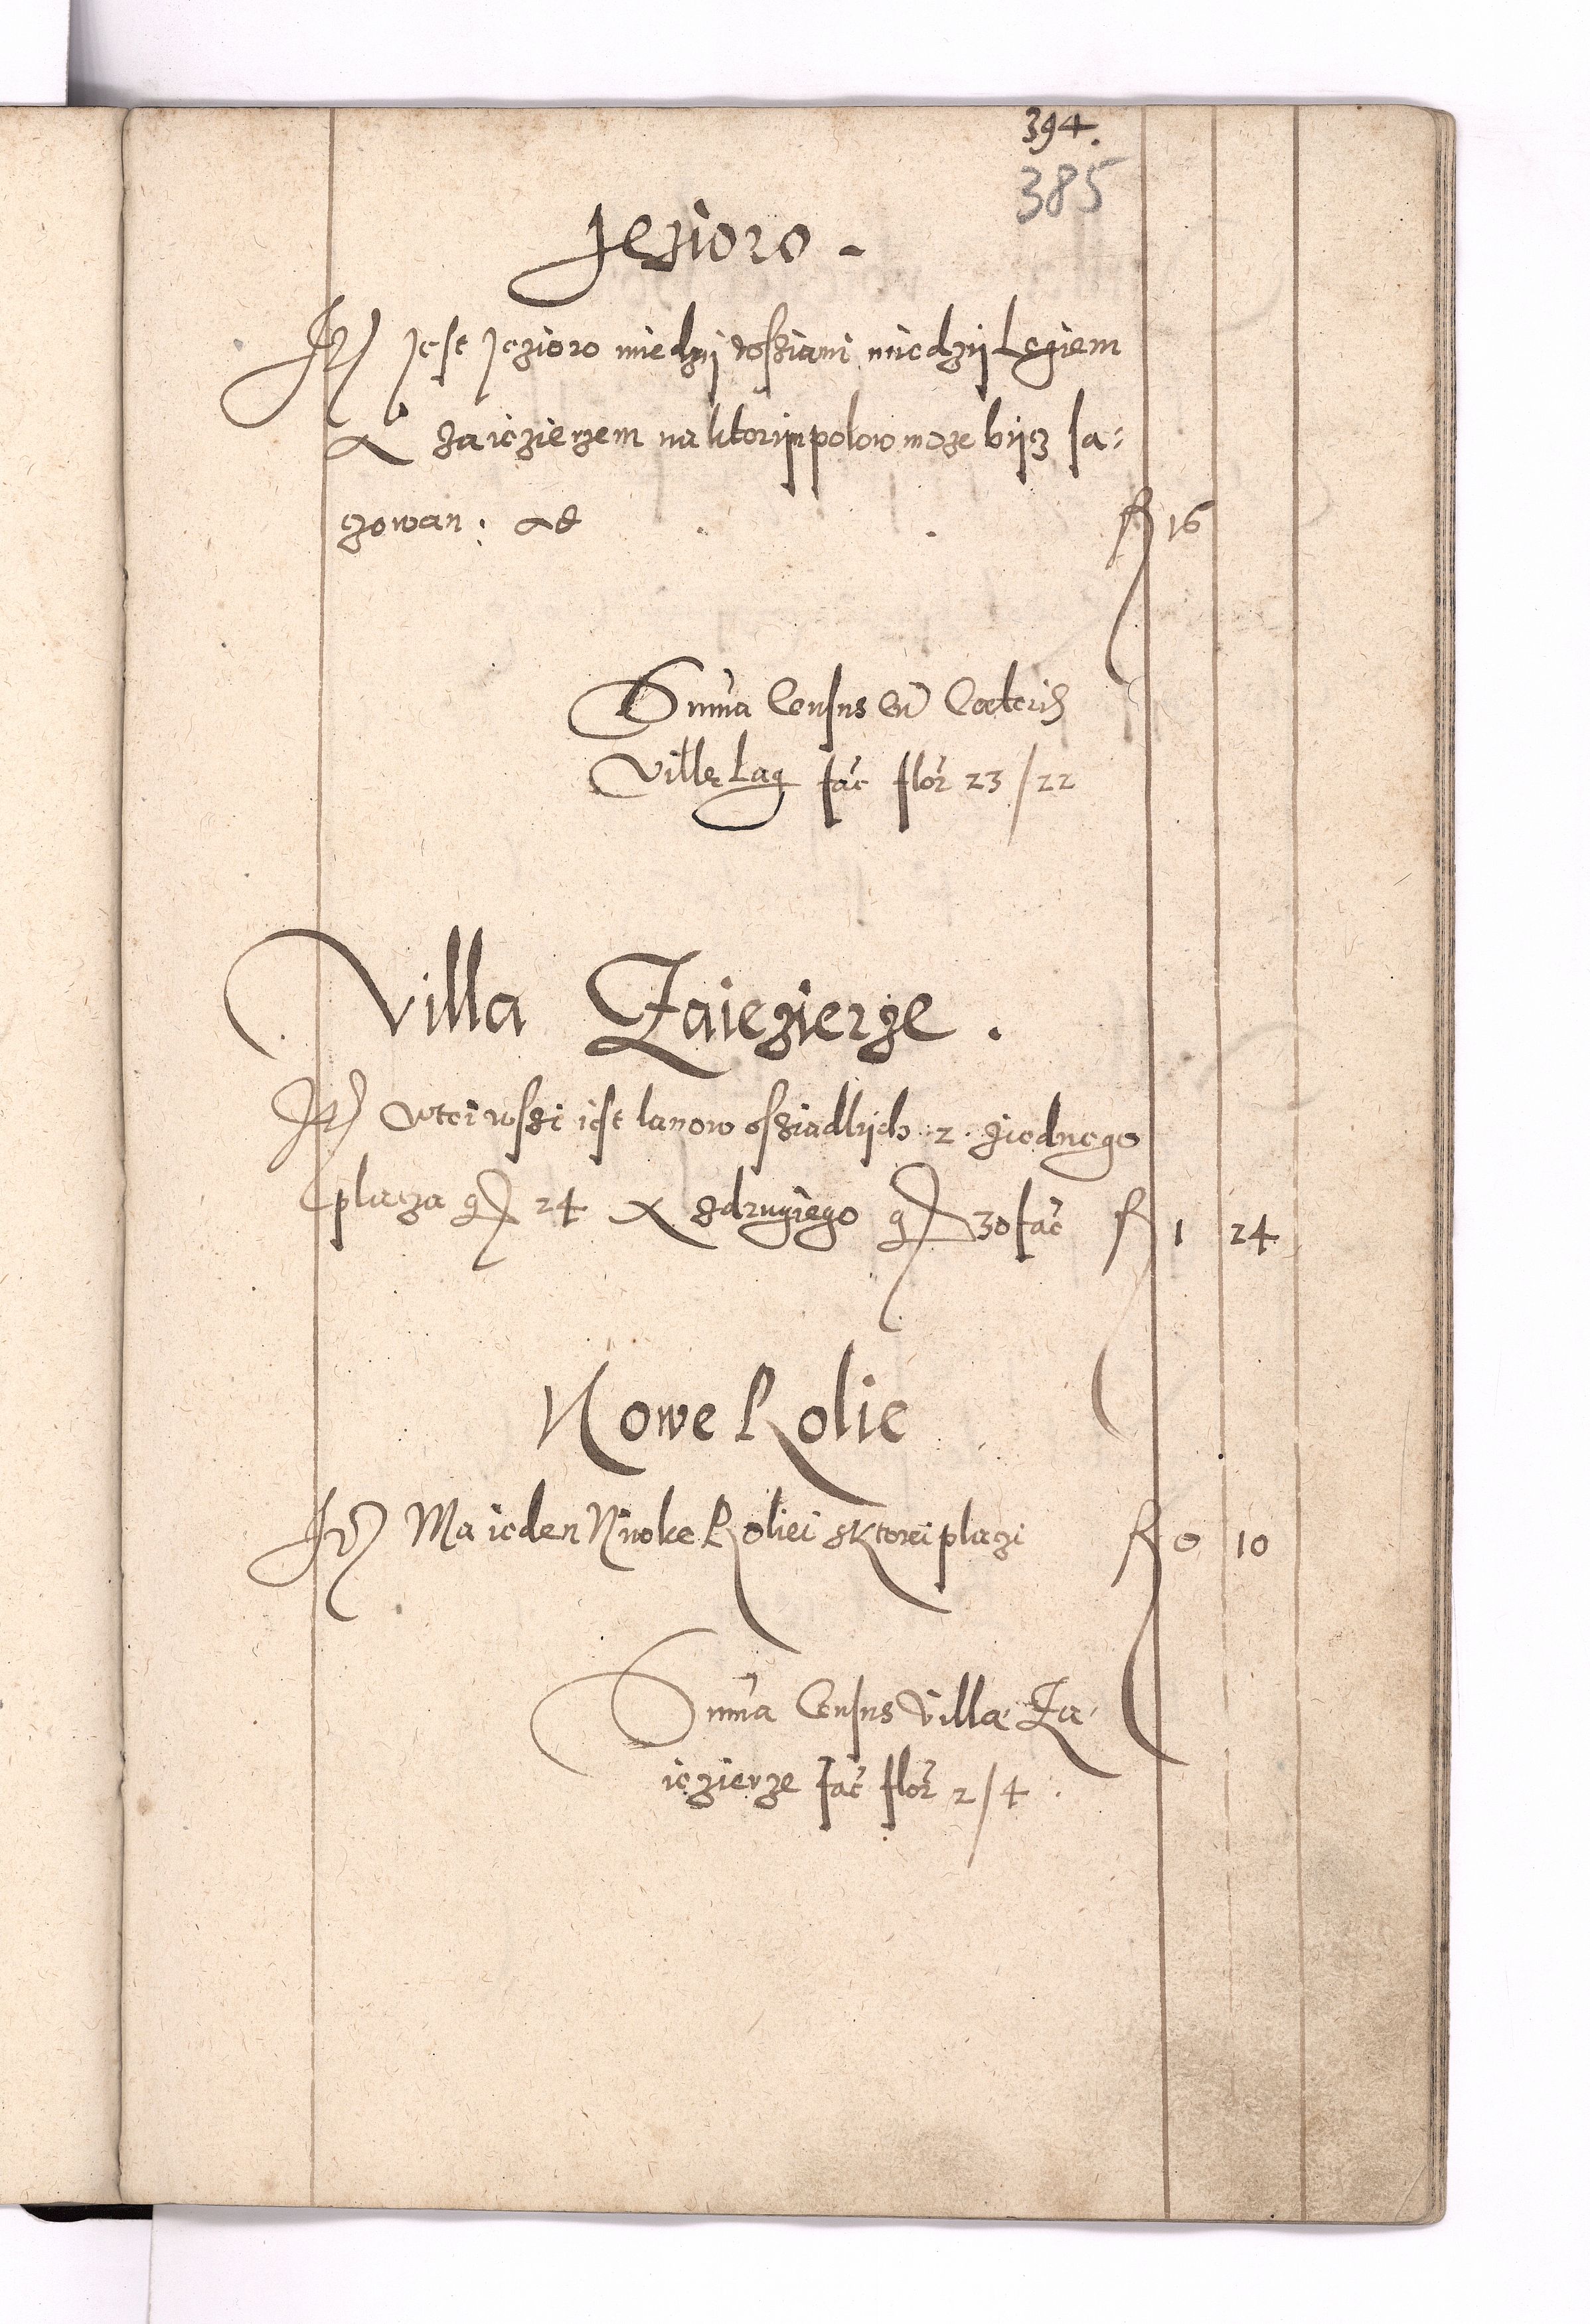 394.
385
Jezioro -
Jt jest Jezioro miedzÿ wssiami miedzÿ Łęgiem
a zaiezierzem na ktorÿm polow może bÿcz sa⸗
czowan: ad fl 16
Suma Census cu Cæteris
Villæ Lag fac flor 23/22
Villa Zaiezierze.
Jt wtei wssi iest lanow ossiadlÿch 2. Ziednego
placza g 24 a zdrugiego g 30 fac fl 1 24
Nowe Rolie
Jt Ma ieden Niwke Roliei sktorei placzi fl 0 10
Suma Census Villæ Za⸗
iezierze fac flor 2/4.